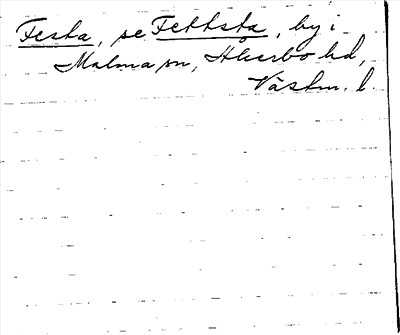 Festa, se Fettsta, by i
Malma sn, Åkerbo hd,
Västm. l.